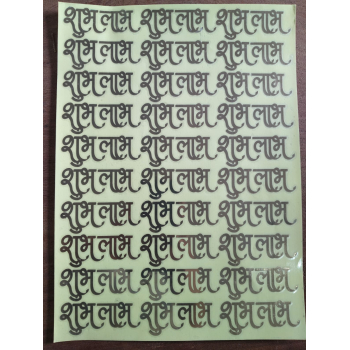 शुभ लाभ शुभ लाभ शुभ लाभ
शुभ लाभ शुभ लाभ शुभ लाभ
शुभ लाभ शुभ लाभ शुभ लाभ
शुभ लाभ शुभ लाभ शुभ लाभ
शुभ लाभ शुभ लाभ शुभ लाभ
शुभ लाभ शुभ लाभ शुभ लाभ
शुभ लाभ शुभ लाभ शुभ लाभ
शुभ लाभ शुभ लाभ शुभ लाभ
शुभ लाभ शुभ लाभ शुभ लाभ
शुभ लाभ शुभ लाभ शुभ लाभ